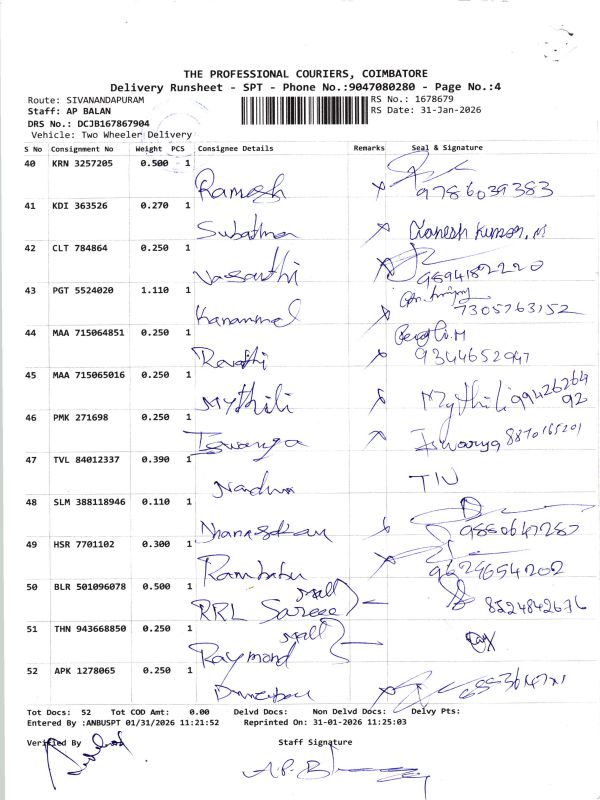 THE PROFESSIONAL COURIERS, COIMBATORE
Delivery Runsheet - SPT - Phone No.:9047080280 - Page No.:4
Route: SIVANANDAPURAM RS No.: 1678679
Staff: AP BALAN RS Date: 31-Jan-2026
DRS No.: DCJB167867904
Vehicle: Two Wheeler Delivery
S No Consignment No Weight PCS Consignee Details Remarks Seal & Signature
40 KRN 3257205 0.500 1
Ramesh 9786039383
41 KDI 363526 0.270 1
Subathra Kumar.M
42 CLT 784864 0.250 1
Vasanthi 9894182220
43 PGT 5524020 1.110 1
Kanammal 7305763152
44 MAA 715064851 0.250 1
Revathi 9344652947
45 MAA 715065016 0.250 1
Mythili Mythili 9942626492
46 PMK 271698 0.250 1
Iswarya Iswarya 8870165201
47 TVL 84012337 0.390 1
48 SLM 388118946 0.110 1
49 HSR 7701102 0.300 1
Rambabu 9629654202
50 BLR 501096078 0.500 1
Mall
RRL Sareee 8524842676
51 THN 943668850 0.250 1
Mall
Raymond
52 APK 1278065 0.250 1
Tot Docs: 52 Tot COD Amt: 0.00 Delvd Docs: Non Delvd Docs: Delvy Pts:
Entered By :ANBUSPT 01/31/2026 11:21:52 Reprinted On: 31-01-2026 11:25:03
Verified By Staff Signature